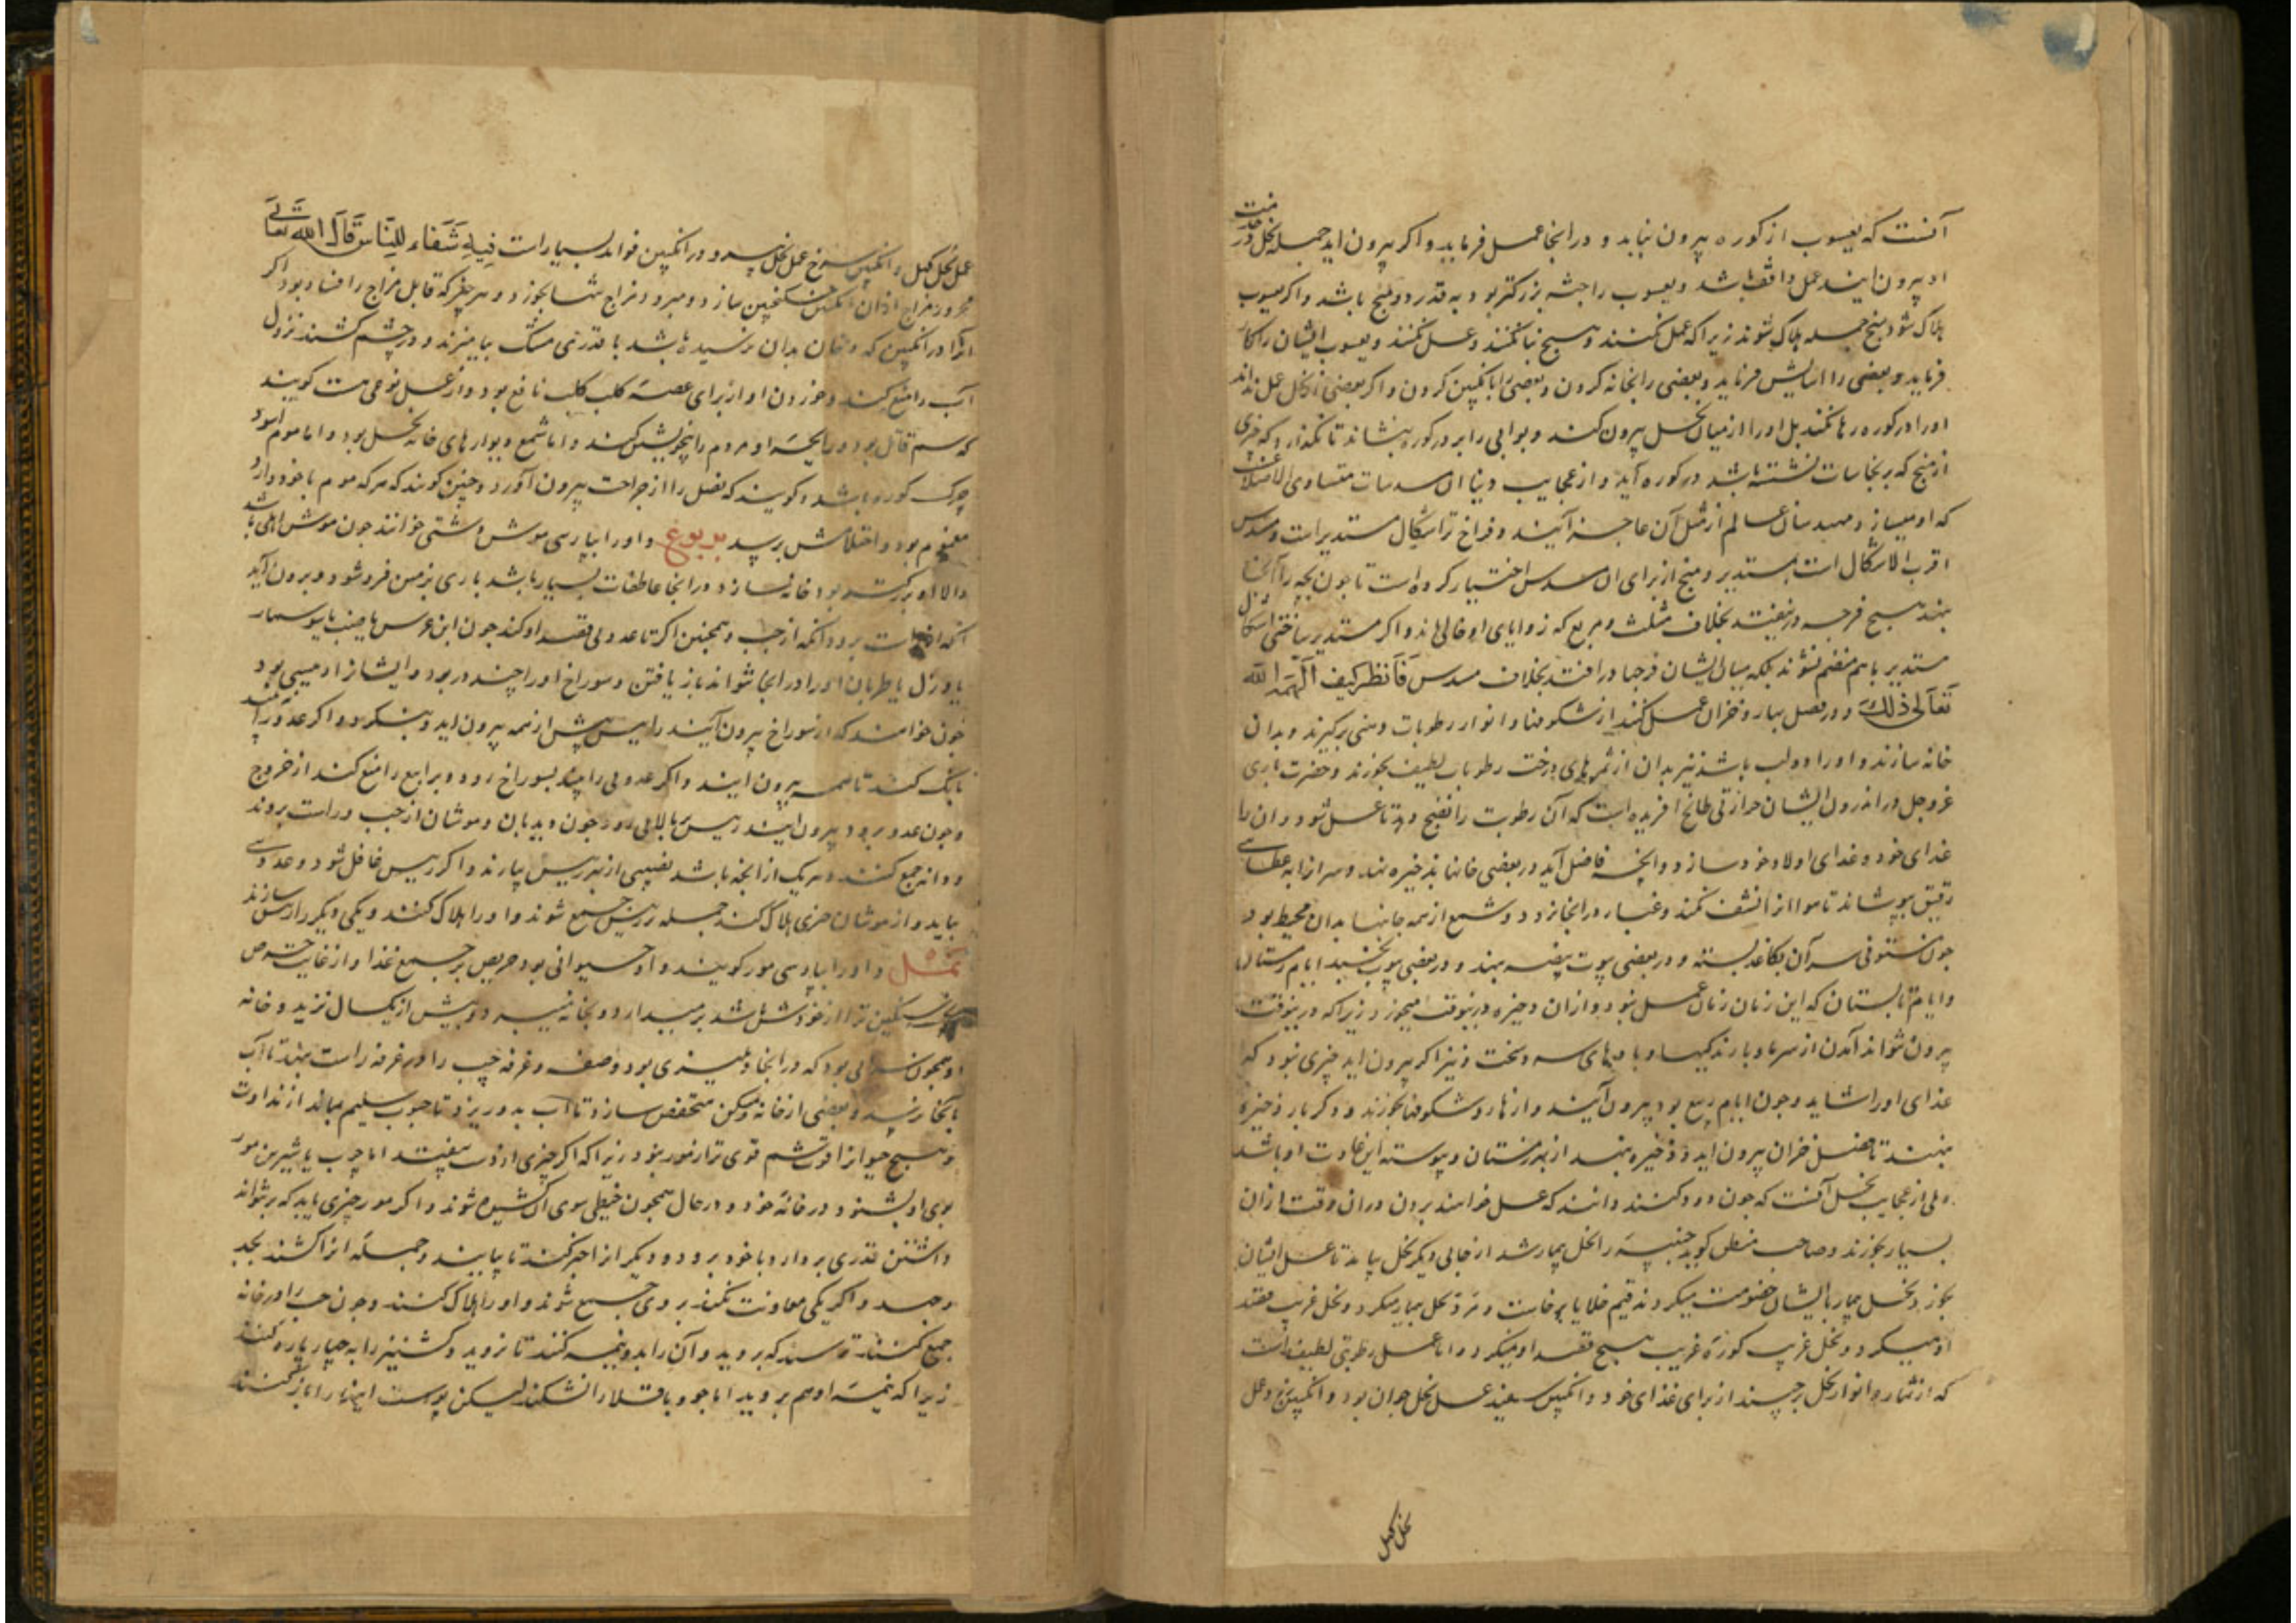 آنست که یعسوب از کوره بیرون نیاید و در انجا عمل فرماید و اکر بیرون اید جمله نحل در خدمت
او بیرون ایند عمل واقف باشد و یعسوب را جثه بزرکتر بود به قدر دو منج باشد و اکر یعسوب
هلاک شود منج جمله هلاک شوند زیرا که عمل نکنند و هیچ بنا نکنند و عسل نکنند و یعسوب ایشان را کار
فرماید و بعضی را اسایش فرماید و بعضی را بخانه کردن و بعضی را بانکبین کردن و اکر بعضی از نحل عمل نداند
اورا در کوره رها نکند بل اورا از میان نحل بیرون کند و بوابی را بر در کوره بنشاند تا نکذارد که چیزی
از منج که بر نجاسات نشسته باشد در کوره آید و از عجایب دنیا ان مسدسات متساوی الاضلاع است
که او میسازد و مهندسان عالم از مثل آن عاجز آیند و فراخ تر اشکال مستدیر است و مسدس
اقرب الاشکال است بمستدیر و منج از برای ان مسدس اختیار کرده است تا چون بچه را آنجا
بنهد هیچ فرجه در نیفتد بخلاف مثلث و مربع که زوایای او خالی ماند و اکر مستدیر ساختی اشکال
مستدیر باهم منضم نشوند بلکه میان ایشان فرجها درافتد بخلاف مسدس فانظر کیف الهمه الله
تعالی ذلک و در فصل بهار و خزان عسل کنند از شکوفها و انوار رطوبات دهنی برکیرند و بدان
خانه سازند و اورا دو لب باشد تیز بدان از ثمرهای درخت رطوبات لطیف بخورند و حضرت باری
عز وجل در اندرون ایشان حرارتی طابخ افریده است که آن رطوبت را نضج دهد تا عسل شود و ان را
غذای خود و غذای اولاد خود سازد و انچه فاضل آید در بعضی خانها بذخیره نهد و سر انرا به غطایی
رقیق بپوشاند تا هوا انرا نشف نکند و غبار در انجا نرود و شمع از همه جانبها بدان محیط بود
چون ... سر آن بکاغد بسته و در بعضی بیوت بیضه نهند و در بعضی بیوت بخسبد ایام زمستان را
و ایام تابستان که این زمان زمان عسل بود و از ان ذخیره درینوقت میخورد زیرا که درینوقت
بیرون نتواند آمدن از سرما و بارندکیها و بادهای سرد سخت و نیز اکر بیرون اید چیزی نبود که
غذای اورا شاید و چون ایام ربیع بود بیرون آیند و از ازهار و شکوفها بخورند و دکر بار ذخیره
نهند تا فصل خزان بیرون اید و ذخیره نهند از بهر زمستان و پیوسته این عادت او باشد
ولی از عجایب نحل آنست که چون دود کنند دانند که عسل خواهند بردن دران وقت ازان
بسیار بخورند و صاحب منطق کوید جنبیه را نحل بیمار شد از جایی دیکر نحل بیامد تا عسل ایشان
بخورد نحل بیمار با ایشان خصومت میکردند قیم خلایا برخاست و مرد نحل بیمار میکرد و نحل غریب قصد
او میکرد و نحل غریب کوره غریب هیچ قصد او نمیکرد و اما عسل رطوبتی لطیف است
که از ثمار و انوار نحل برچیند از برای غذای خود و انکبین سفید عسل نحل جوان بود و انکبین زرد عمل
نحل کهل
عمل نحل کهل و انکبین سرخ عمل نحل پیر و در انکبین فواید بسیار است فیه شفاء للناس قال الله تعالی
محرور مزاج ازان انکبین سکنجبین سازد و مبرود مزاج تنها بخورد و هر چیز که قابل مزاج را فساد بود اکر
انرا در انکبین که دخان بدان نرسیده باشد با قدری مشک بیامیزند و در چشم کشند نزول
آب را منع کند و خوردن او از برای عضه کلب کلب نافع بود و از عسل نوعی هست کویند
که سم قاتل بود و رایحه او مردم را بیهوش کند و اما شمع دیوارهای خانه نحل بود و اما موم اسود
چرک کوره باشد و کویند که نصل را از جراحت بیرون آورد و چنین کویند که هر که موم با خود دارد
مغموم بود و احتلامش برسد یربوع و اورا بپارسی موش دشتی خوانند چون موش اهلی باشد
والا او بزرکتر بود خانه سازد و در انجا عاطفات بسیار باشد باری بزمین فرو شود و برون آید
آنکه از راست برود و آنکه از چپ و همچنین اکر تا عدوی قصد او کند چون ابن عرس یا ضب یا سوسمار
یا ورل یا ظربان اورا در انجا نتواند باز یافتن و سوراخ اورا چند در بود و ایشانرا رئیسی بود
چون خواهند که از سوراخ بیرون آیند رئیس پیش از همه بیرون اید و بنکرد و اکر عدو را بیند
بانک کند تا همه بیرون نیایند و اکر عدوی را بیند بسوراخ رود و یرابیع را منع کند از خروج
و چون عدو برود بیرون ایند رئیس ببالایی رود چون دیدبان و موشان از چپ و راست بروند
و دانه جمع کنند و هریک از انچه باشد نصیبی از بهر رئیس بیارند و اکر رئیس غافل شود و عدوی
بیاید و از موشان چیزی هلاک کند جمله بر رئیس جمع شوند و اورا هلاک کنند و یکی دیکر را رئیس سازند
نمل و اورا بپارسی مور کویند و او حیوانی بود حریص بر جمع غذا و از غایت حرص
چیزی سنکین تر از خود بر میدارد و بخانه میبرد و بیش از یکسال نزید و خانه
او همچون سرایی بود که در انجا دهلیزی بود و صفه و غرفه چپ را و غرفه راست نهند تا آب
بانجا نرسد و بعضی از خانه و مسکن منخفض سازد تا آب بدو ریزد تا حبوب سلیم بماند از نداوت
و هیچ حیوانرا قوت شم قوی تر از مور نبود زیرا که اکر چیزی از دست بیفتد اما چرب یا شیرین مور
بوی او بشنود و در خانه خود و در حال همچون خیطی سوی ان کشیده شوند و اکر مور چیزی یابد که برنتواند
داشتن قدری بردارد با خود برد و دیکر انرا خبر کند تا بیایند و جمله انرا کشند بجد
و جهد و اکر یکی معاونت نکند بر وی جمع شوند و اورا هلاک کنند و چون حب را در خانه
جمع کنند ترسند که بروید و آن را بدو نیمه کنند تا نروید و کشنیز را به چهار پاره کنند
زیرا که نیمه او هم بروید اما جو و باقلا را نشکند لیکن پوست اینها را باز کنند